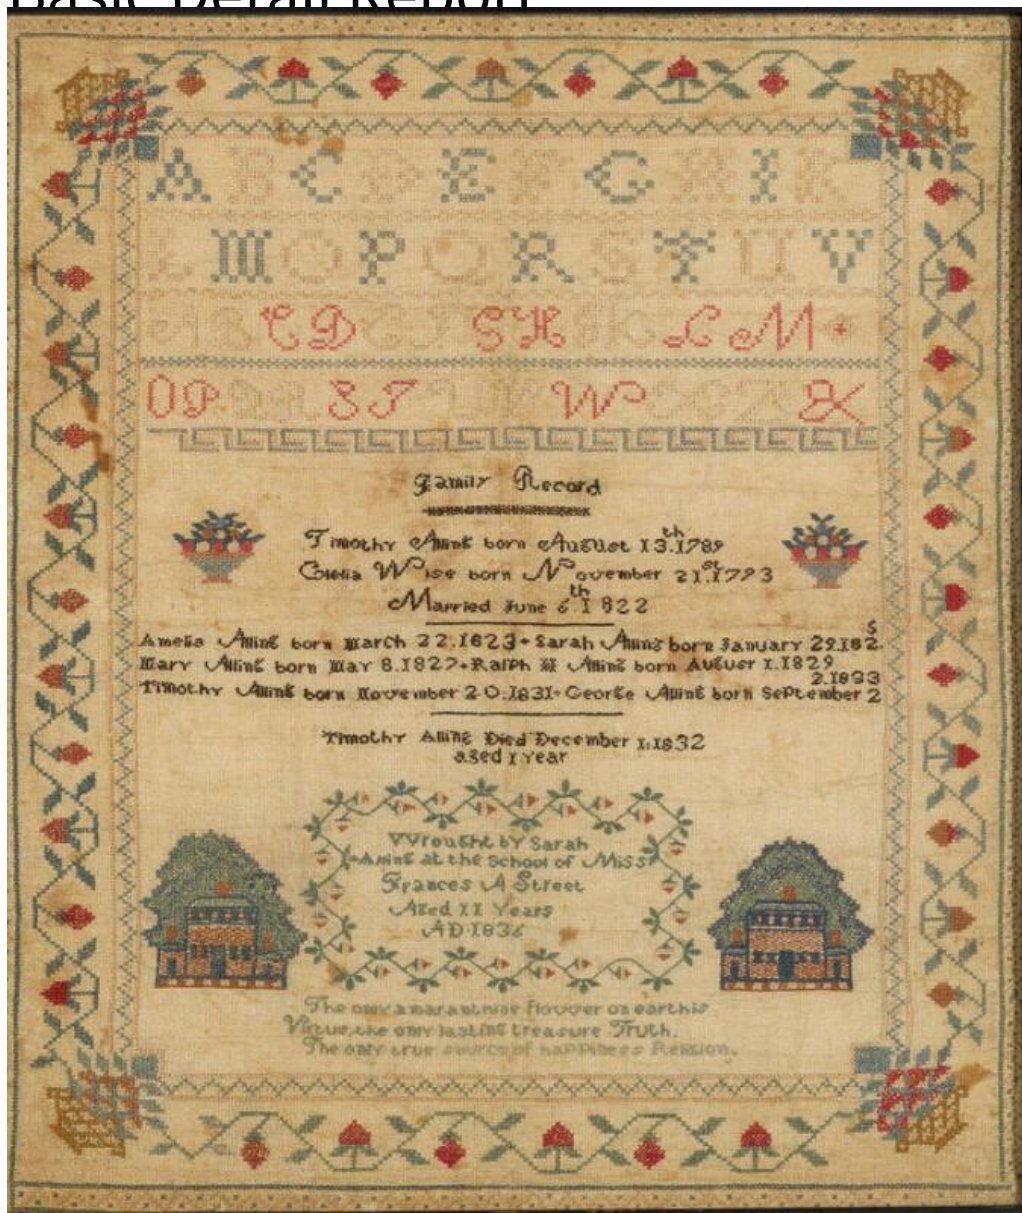 Basic Detail Report
A B C D E F G H I K
L M O P Q R S T U V
A B C D E F G H I K L M
O P Q R S T U V W X Y Z &
Family Record
Timothy Alling born August 13th.1789
Clelia Wise born November 21st.1793
Married June 6th.1822
Amelia Alling born March 22.1823 Sarah Alling born January 29.182
5
Mary Alling born May 8.1827 Ralph H Alling born August 1.1829
2.1833
Timothy Alling born November 20.1831 George Alling born September 2
Timothy Alling Died December 1.1832
aged 1 year
Wrought by Sarah
Alling at the School of Miss
Frances A Street
Aged 11 Years
AD 1836
The only amaranthine flower on earth is
Virtue, the only lasting treasure Truth.
The only true source of happiness Religion.